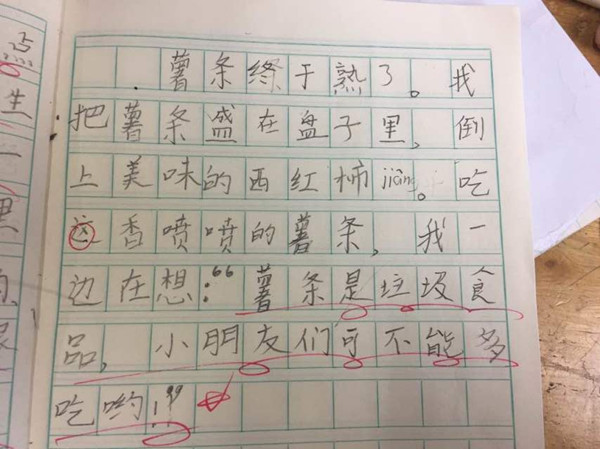 薯条终于熟了。我
把薯条盛在盘子里，倒
上美味的西红柿jiàng。吃
这香喷喷的薯条，我一
边在想：“薯条是垃圾食
品，小朋友们可不能多
吃哟！”